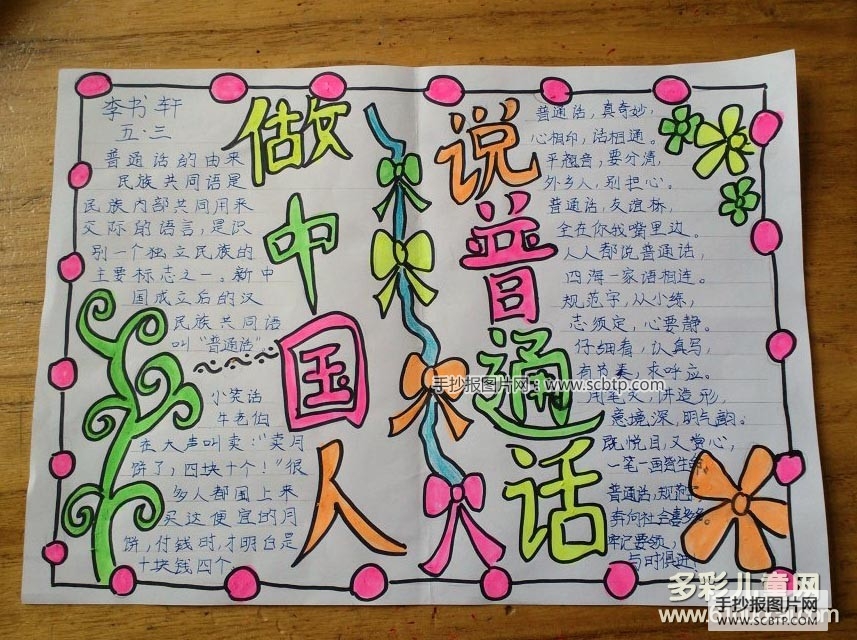 李书轩
五·三
普通话的由来
民族共同语是
民族内部共同用来
交际的语言,是识
别一个独立民族的
主要标志之一。新中
国成立后的汉
民族共同语
叫“普通话”
小笑话
牛老伯
在大声叫卖:“卖月
饼了,四块十个!”很
多人都围上来
买这便宜的月
饼,付钱时,才明白是
十块钱四个
做中国人
说普通话
普通话,真奇妙,
心相印,话相通。
平翘音,要分清,
外乡人,别担心。
普通话,友谊桥,
全在你我嘴里边。
人人都说普通话,
四海一家语相连。
规范字,从小练,
志须定,心要静。
仔细看,认真写,
有节奏,求呼应。
用笔灵,讲造形,
意境深,明气韵。
既悦目,又赏心,
一笔一画
普通话,规范
牢记要领,
与时俱进
手抄报图片网:www.scbtp.com
多彩儿童网
手抄报图片网
WWW.SCBTP.COM